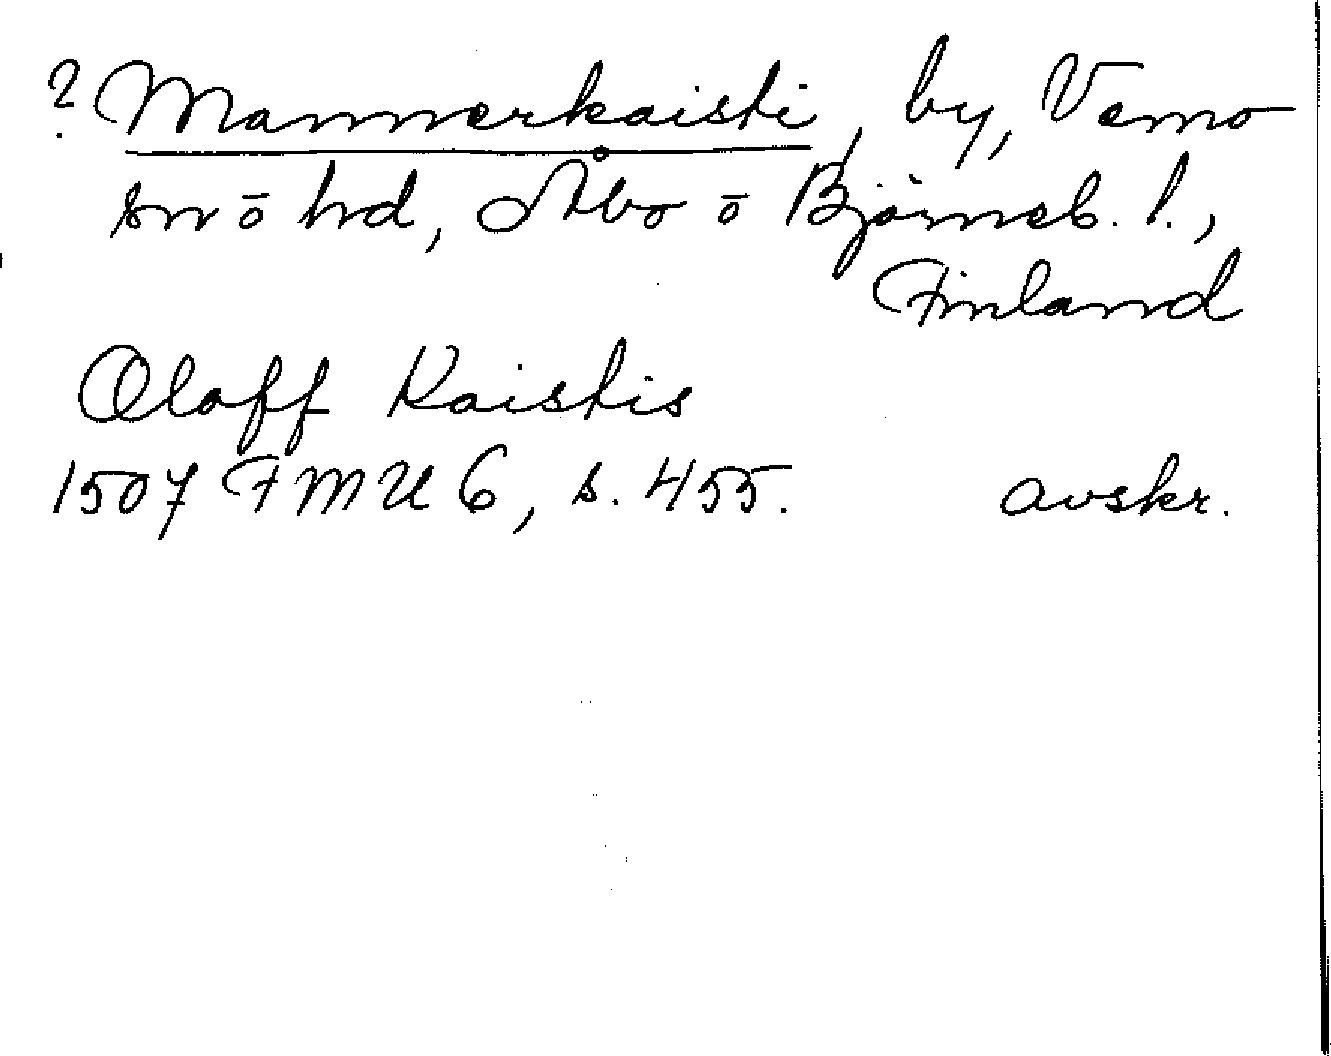 ? Mannerkaisti, by, Vemo
sn ō hd, Åbo ō Björneb. l.,
Finland
Oloff Kaistis
1507 FMU 6, s. 455. avskr.